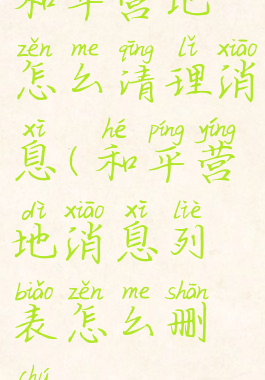 和平营地
zěn me qīng lǐ xiāo
怎么清理消
xī hé píng yíng
息(和平营
dì xiāo xī liè
地消息列
biǎo zěn me shān
表怎么删
chú